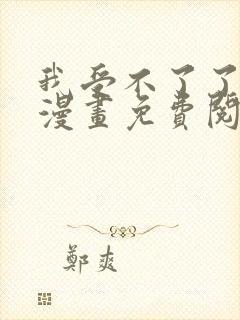 我受不了了
漫畫免費閱
鄭爽